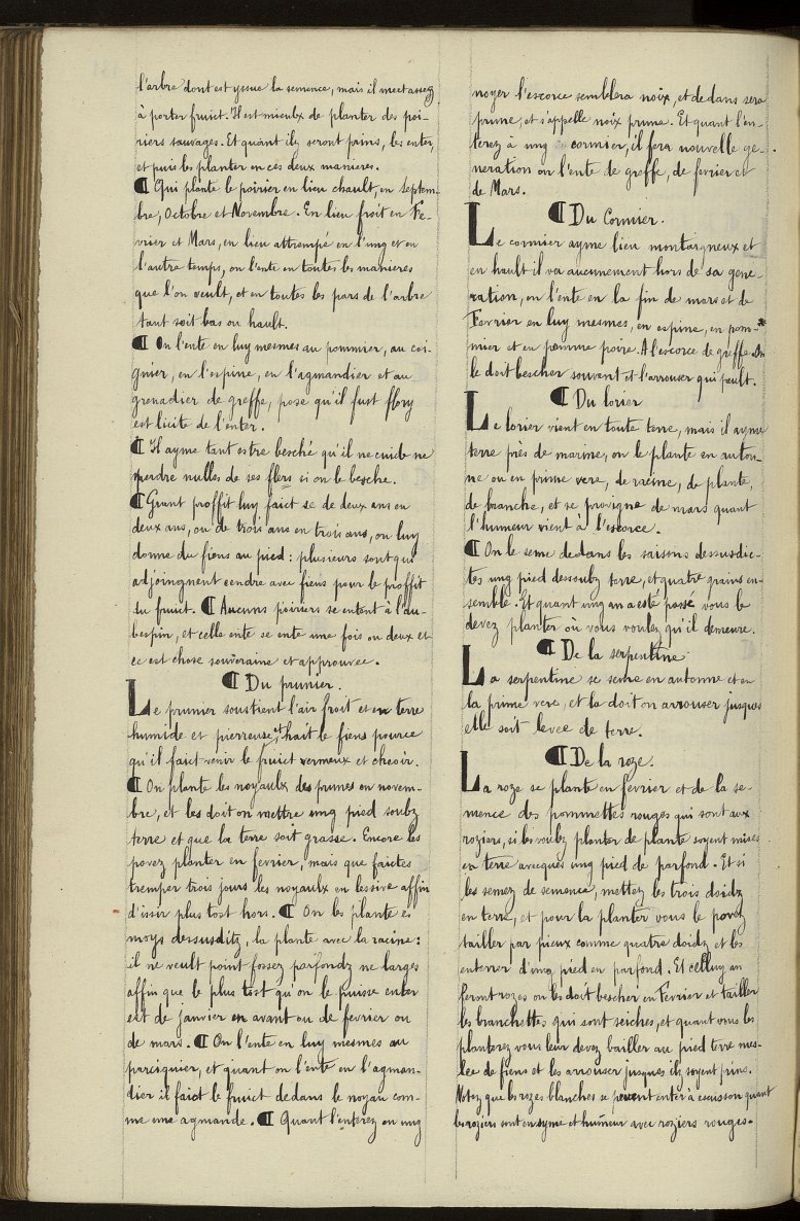 l'arbre dont est yssue la semence, mais il mect assez
à porter fruict. Il est mieulx de planter des poi-
riers sauvages. Et quant ilz seront prins, les enter,
et puis les planter en ces deux manieres.
¶ Qui plante le poirier en lieu chault, en Septem-
bre, Octobre et Novembre. En lieu froit en Fe-
vrier et Mars, en lieu attrempé en l'ung et en
l'autre temps, on l'ente en toutes les manieres
que l'on veult, et en toutes les pars de l'arbre
tant soit bas ou hault.
¶ On l'ente en luy mesmes au pommier, au coi-
gnier, en l'espine, en l'agmandier et au
grenadier de greffe, posé qu'il fust flory
est licite de l'enter.
¶ Il ayme tant estre besché qu'il ne cuide ne
perdre nulles de ses flers si on le besche.
¶ Grant proffit luy faict se de deux ans en
deux ans, ou de trois ans en trois ans, on luy
donne du fiens au pied : plusieurs sont qui
adjoingnent cendre avec fiens pour le proffit
du fruict. ¶ Aucuns poiriers se entent à l'au-
bespin, et celle ente se ente une fois ou deux et
ce est chose souveraine et approuvee.
¶ Du prunier.
Le prunier soustient l'air froit et en terre
humide et pierreuse, et hait le fiens pource
qu'il faict venir le fruict vermeux et cheoir.
¶ On plante les noyaulx des prunes en novem-
bre, et les doit on mettre ung pied soubz
terre et que la terre soit grasse. Encore les
povez planter en fevrier, mais que faictes
tremper trois jours les noyaulx en lessive affin
d'issir plus tost hors. ¶ On les plante es
moys dessusditz, la plante avec la racine :
il ne veult point fossez parfondz ne larges
affin que le plus tost qu'on le puisse enter
est de janvier en avant ou de fevrier ou
de mars. ¶ On l'ente en luy mesmes au
parciguier, et quant on l'ente en l'agman-
dier il faict le fruict dedans le noyau com-
me une agmande. ¶ Quant l'enterez en ung
noyer l'escorce semblera noix, et dedans sera
prune, et s'appelle noix prune. Et quant l'en-
terez à ung cormier, il fera nouvelle ge-
neration on l'ente de greffe, de fevrier et
de Mars.
¶ Du Cormier.
Le cormier ayme lieu montaigneux et
en hault il va aucunement hors de sa gene-
ration, on l'ente en la fin de mars et de
Fevrier en luy mesmes, en espine, en pom-
mier et en pomme poire. A l'escorce de greffe. On
le doit bescher souvent et l'arrouser qui peult.
¶ Du lorier
Le lorier vient en toute terre, mais il ayme
terre près de marine, on le plante en autom-
ne ou en prime vere, de racine, de plante,
de branche, et se provigne de mars quant
l'humeur vient à l'escorce.
¶ On le seme dedans les saisons dessusdic-
tes ung pied dessoubz terre, et quatre grains en-
semble. Et quant ung an a esté passé vous le
devez planter où vous voulez qu'il demeure.
¶ De la serpentine.
La serpentine se seme en automne et en
la prime vere, et la doit on arrouser jusques
elle soit levee de terre.
¶ De la roze.
La roze se plante en fevrier et de la se-
mence des pommettes rouges qui sont aux
roziers, si les voulez planter de plante soyent mises
en terre avecques ung pied de parfond. Et si
les semez de semence, mettez les trois doidz
en terre, et pour la planter vous le povez
tailler par pieux comme quatre doidz et les
enterrer d'ung pied en parfond. Et celluy an
feront rozes on les doit bescher en Fevrier et tailler
les branchettes qui sont seiches, et quant vous les
planterez vous leur devez bailler au pied terre mes-
lee de fiens et les arrouser jusques ilz soyent prins.
Notez que les rozes blanches se peuvent enter à escusson quant
les roziers sont en syme et humeur avec roziers rouges.